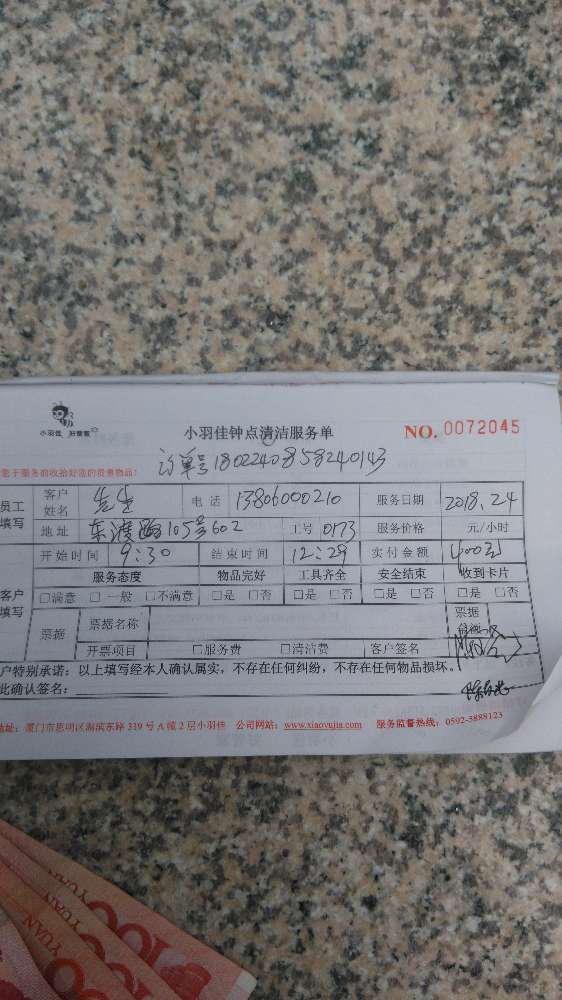 小羽佳 好管家
小羽佳钟点清洁服务单 NO. 0072045
订单号180224085 8240143
您于服务前收拾好您的贵重物品!
员工填写 客户姓名 先生 电话 13806000210 服务日期 2018.24
地址 东渡路105号602 工号 0173 服务价格 元/小时
开始时间 9:30 结束时间 12:29 实付金额 400元
服务态度 物品完好 工具齐全 安全结束 收到卡片
客户填写 □满意 □一般 □不满意 □是 □否 □是 □否 □是 □否 □是 □否
票据 票据名称 票据
开票项目 □服务费 □清洁费 客户签名
户特别承诺:以上填写经本人确认属实,不存在任何纠纷,不存在任何物品损坏。
此确认签名:
地址:厦门市思明区湖滨东路 319 号 A 幢 2 层小羽佳 公司网站:www.xiaoyujia.com 服务监督热线:0592-3888123
YUAN
YUAN
YUAN
100